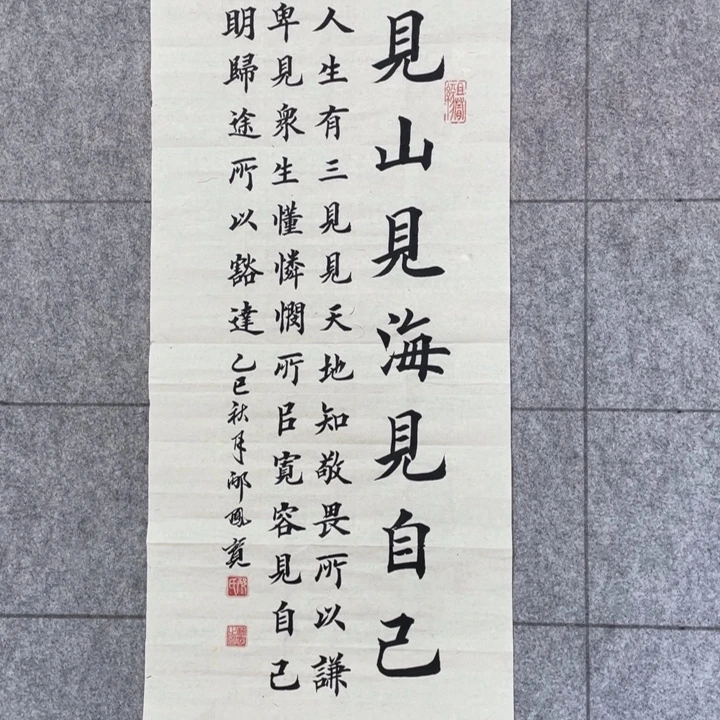 見山見海見自己
人生有三見見天地知敬畏所以謙
卑見衆生懂憐憫所㠯寬容見自己
明歸途所以豁達
乙巳秋月邴鳳寛